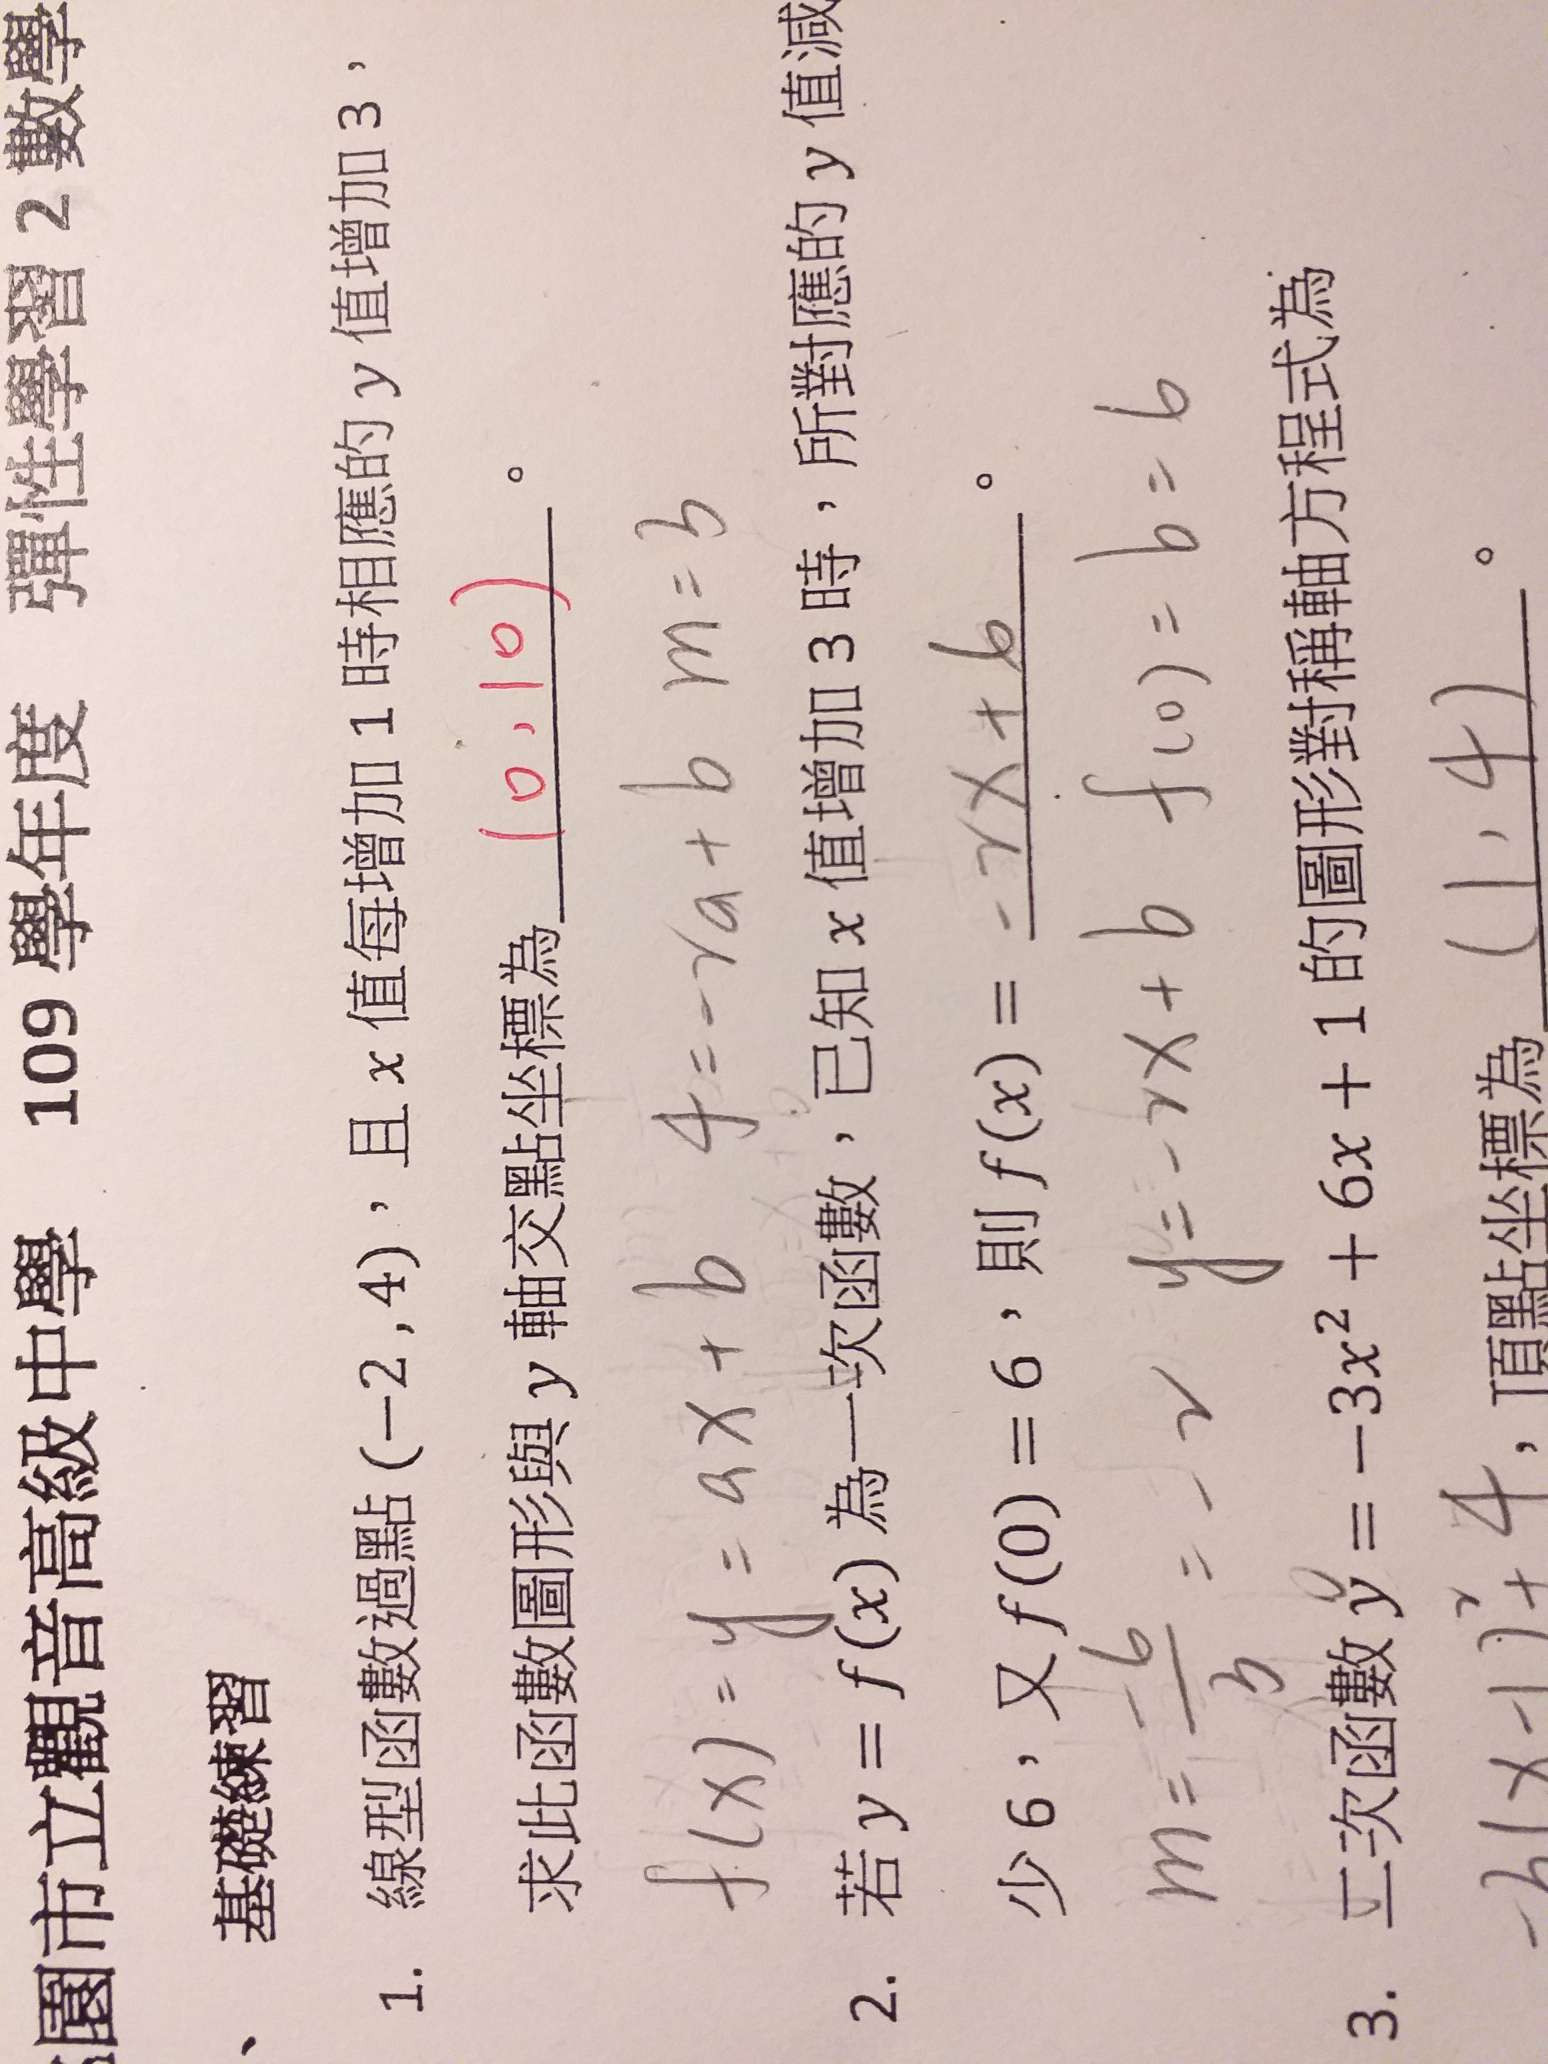 園市立觀音高級中學 109 學年度 彈性學習 2 數學
、 基礎練習
1. 線型函數過點 (−2,4)，且 x 值每增加 1 時相應的 y 值增加 3，
求此函數圖形與 y 軸交點坐標為 (0,10) 。
f(x) = y = ax + b 4 = -2a + b m = 3
2. 若 y = f(x) 為一次函數，已知 x 值增加 3 時，所對應的 y 值減
少 6，又 f(0) = 6，則 f(x) = -2x + 6 。
m = -6/3 = -2 y = -2x + b f(0) = b = 6
3. 二次函數 y = −3x² + 6x + 1 的圖形對稱軸方程式為
-3(x-1)²+4，頂點坐標為 (1,4) 。